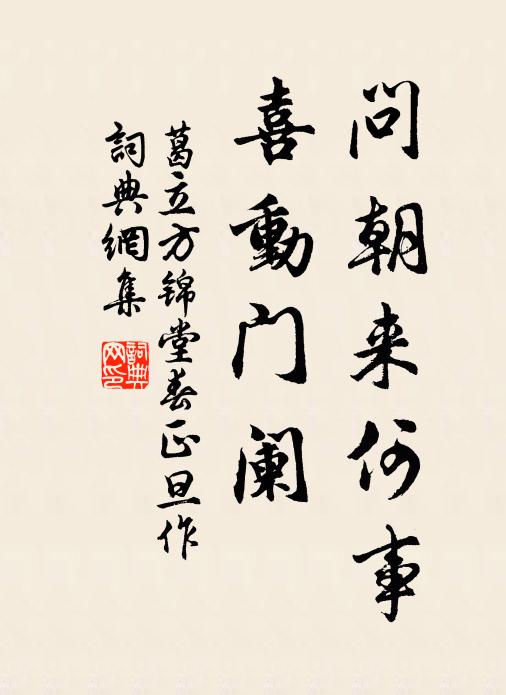 问朝来何事
喜動门阑
葛立方锦堂春正旦作
詞典網集
詞典网印